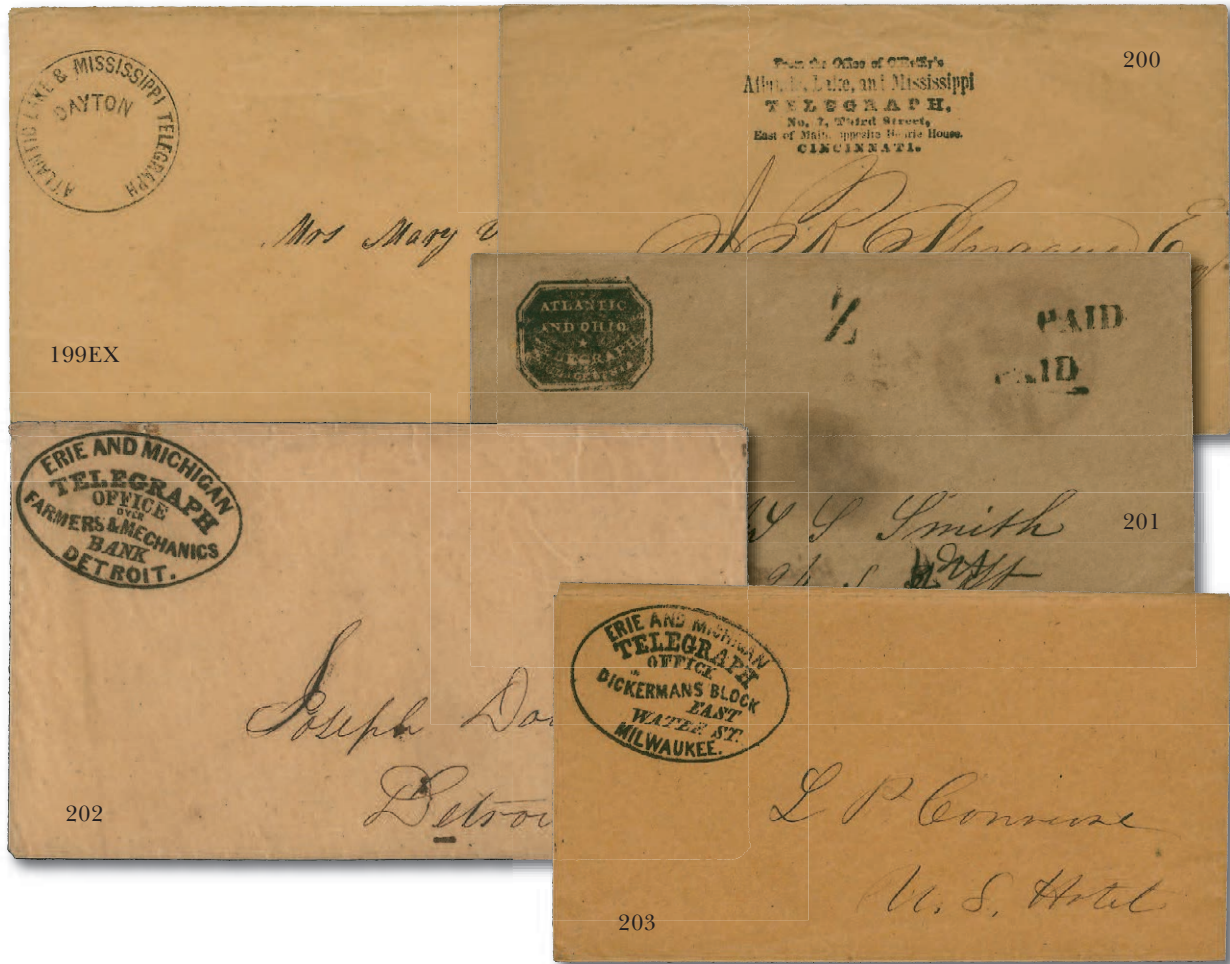 ATLANTIC LAKE & MISSISSIPPI TELEGRAPH
DAYTON
Mrs Mary
199EX
200
From the Office of O'Reilly's
Atlantic, Lake, and Mississippi
TELEGRAPH,
No. 7, Third Street,
East of Main, opposite House.
CINCINNATI.
ATLANTIC
AND OHIO
TELEGRAPH
PAID
PAID
S Smith
201
ERIE AND MICHIGAN
TELEGRAPH
OFFICE
OVER
FARMERS & MECHANICS
BANK
DETROIT.
Joseph
Detroi
202
ERIE AND MICHIGAN
TELEGRAPH
OFFICE
DICKERMANS BLOCK
EAST
WATER ST.
MILWAUKEE.
L P Converse
U. S. Hotel
203